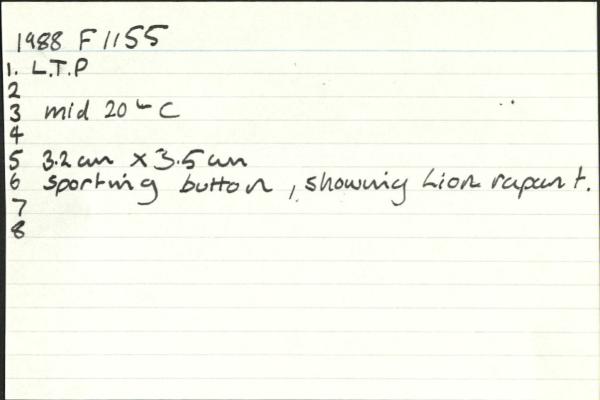 1988 F 1155
1. L.T.P
2
3 mid 20th C
4
5 3.2cm x 3.5cm
6 sporting button, showing Lion rapant.
7
8